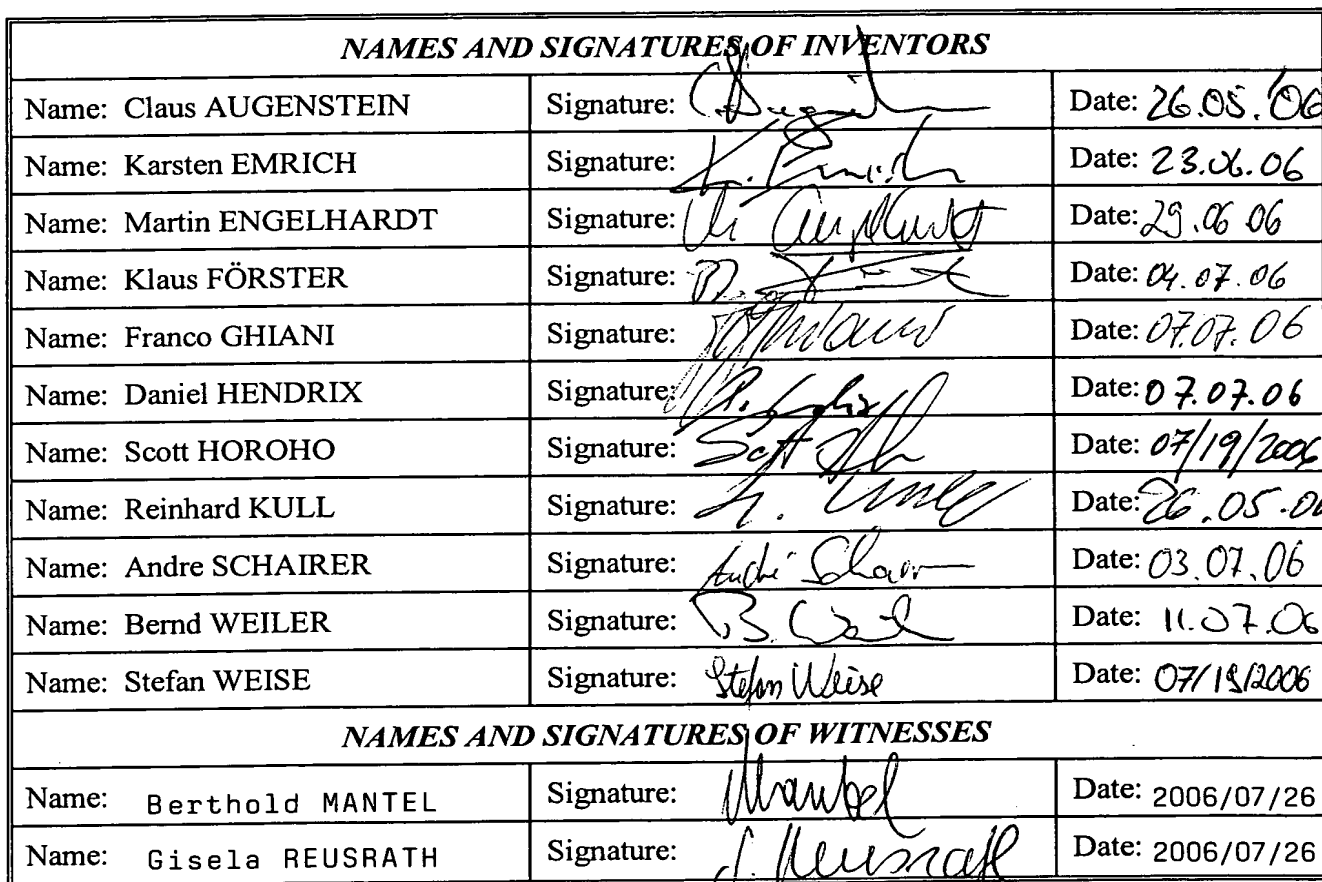 NAMES AND SIGNATURES OF INVENTORS
Name: Claus AUGENSTEIN Signature: Date: 26.05.'06
Name: Karsten EMRICH Signature: K. Emrich Date: 23.06.06
Name: Martin ENGELHARDT Signature: Date: 29.06 06
Name: Klaus FÖRSTER Signature: Date: 04.07.06
Name: Franco GHIANI Signature: Date: 07.07.06
Name: Daniel HENDRIX Signature: Date: 07.07.06
Name: Scott HOROHO Signature: Scott Date: 07/19/2006
Name: Reinhard KULL Signature: Date: 26.05.06
Name: Andre SCHAIRER Signature: André Date: 03.07.06
Name: Bernd WEILER Signature: B. Date: 11.07.06
Name: Stefan WEISE Signature: Stefan Weise Date: 07/19/2006
NAMES AND SIGNATURES OF WITNESSES
Name: Berthold MANTEL Signature: Mantel Date: 2006/07/26
Name: Gisela REUSRATH Signature: Reusrath Date: 2006/07/26